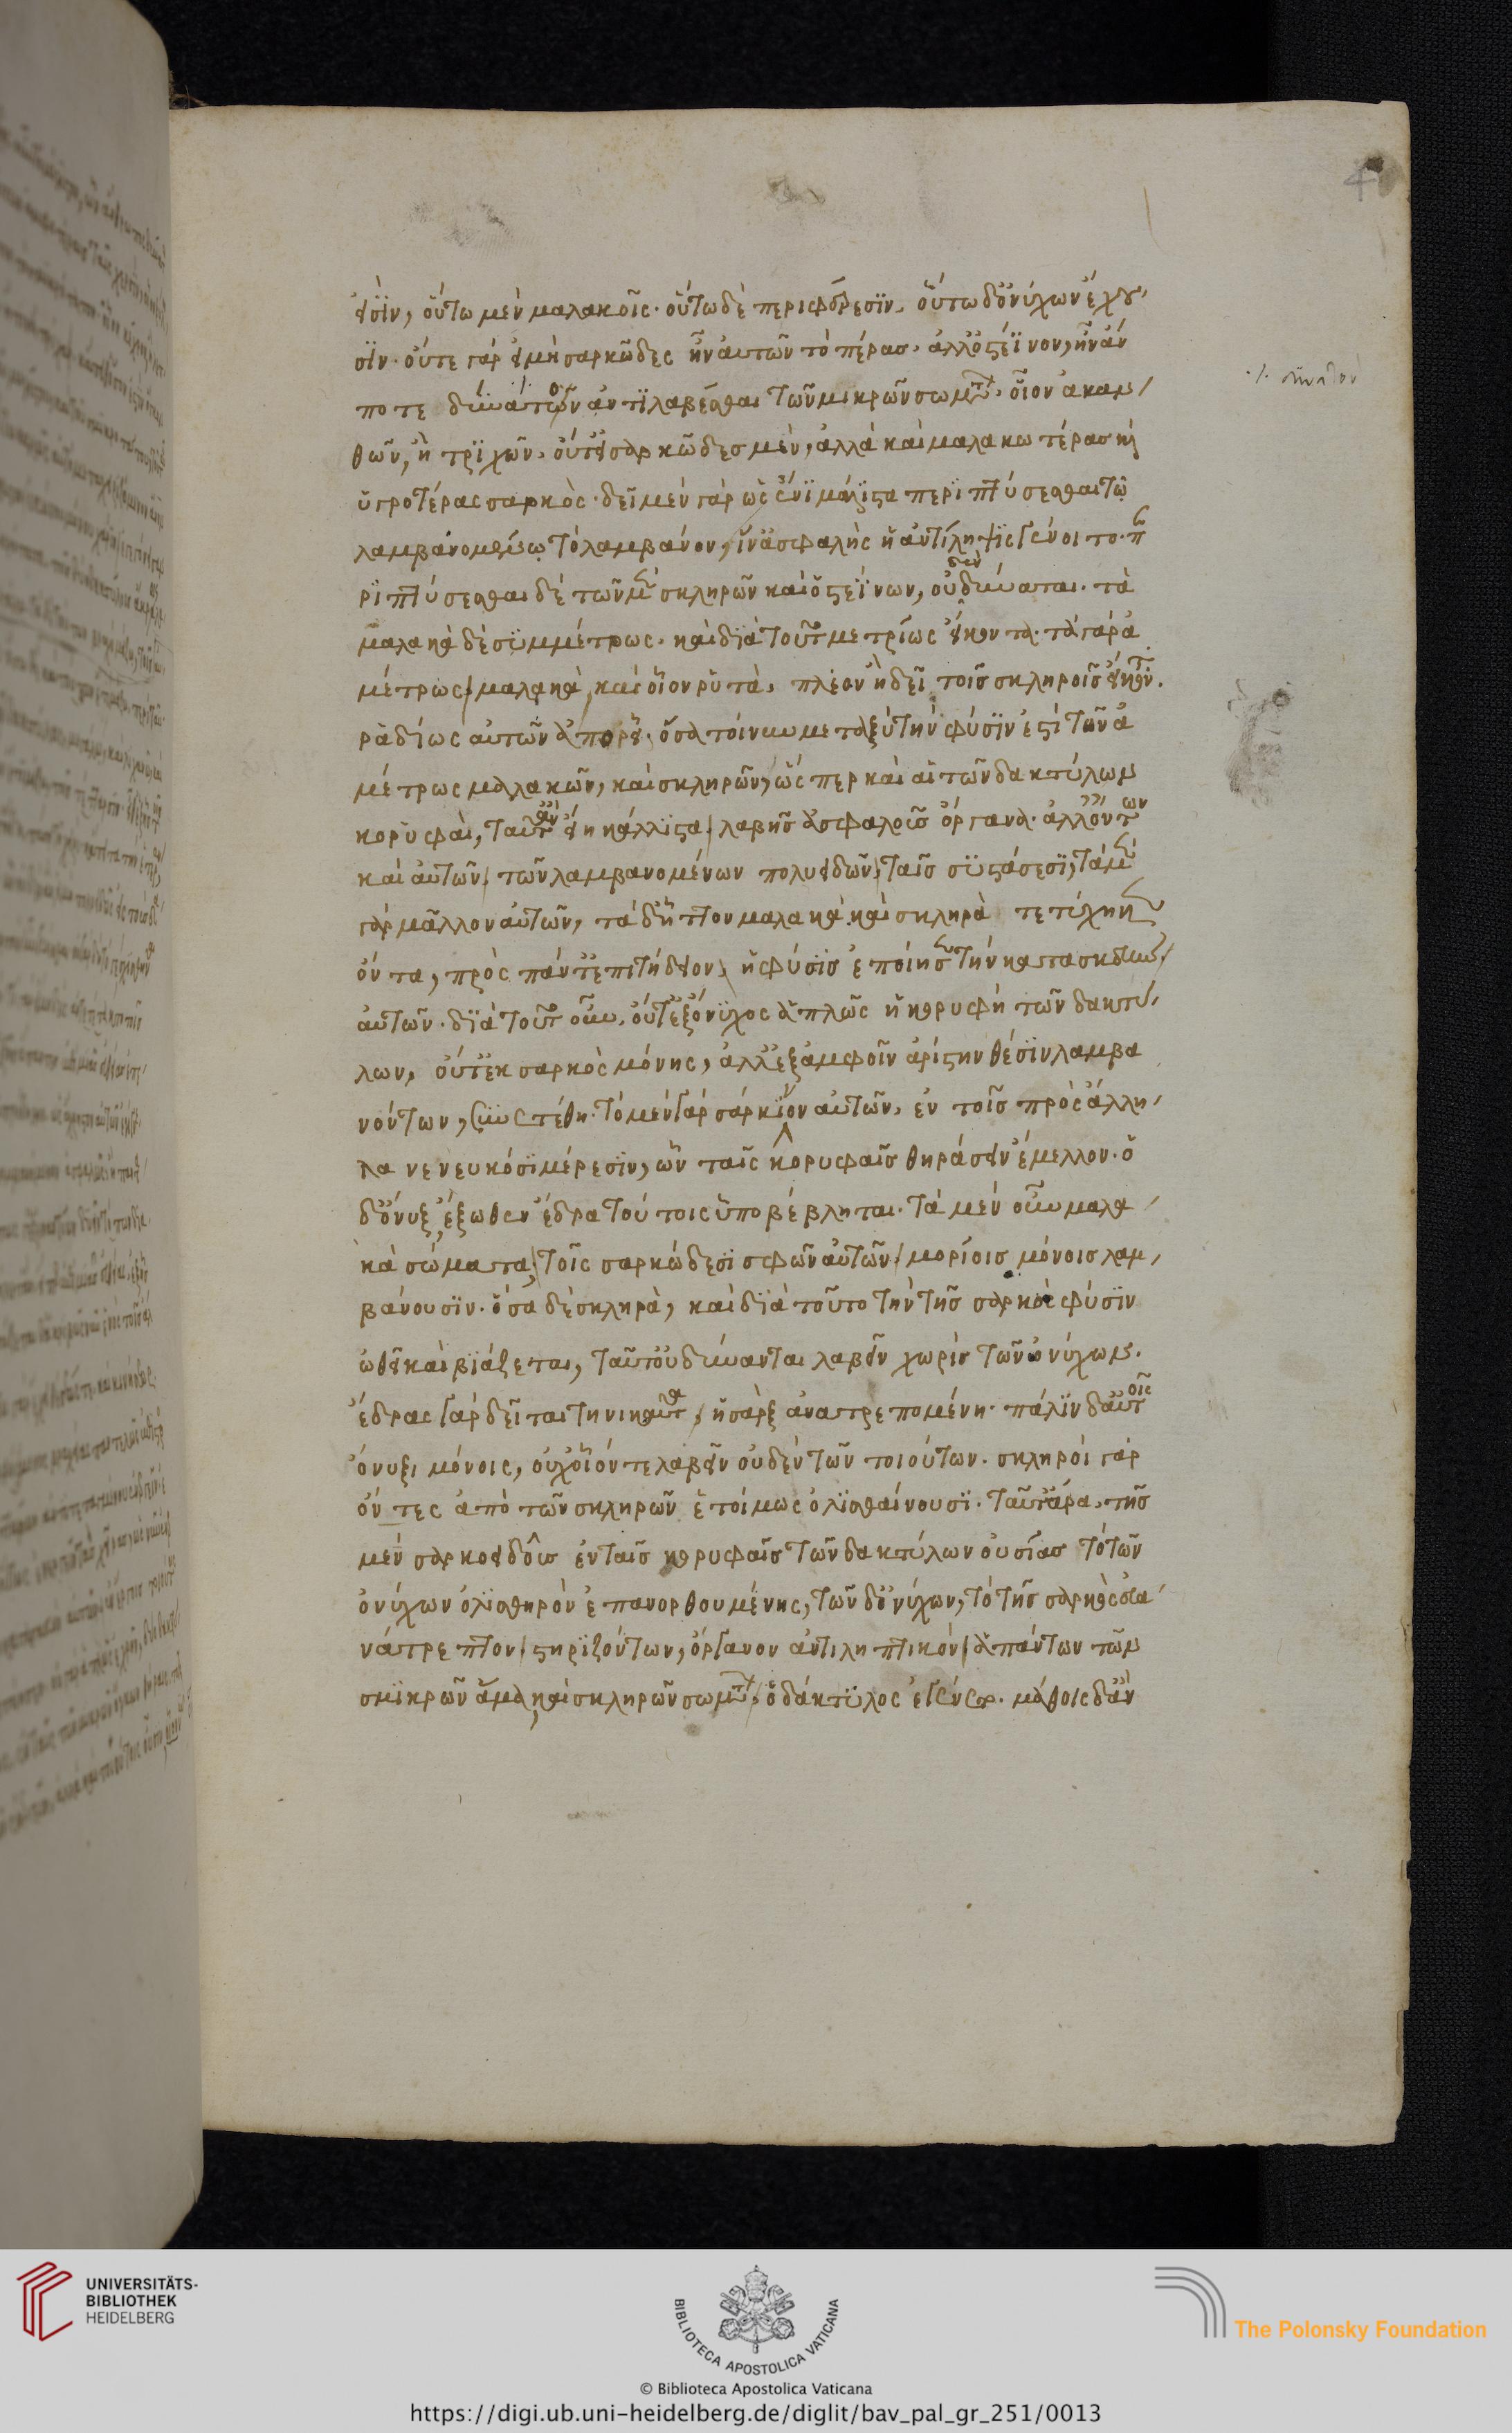 εισὶν, οὕτω μὲν μαλακοῖς· οὕτω δὲ περιφερέσϊν, οὕτω δ' ὀνύχων ἔχου,
σϊν· οὔτε γὰρ εἰ μὴ σαρκῶδες ἦν αυτῶν τὸ πέρας, ἀλλ' ὀστέϊνον, ἦν ἄν
ποτε δυνατὸν ἀντϊλαβέσθαι τῶν μικρῶν σωμάτων, οἷον ἀκαν,
θῶν, ἢ τρϊχῶν, οὔτ' εἰ σαρκῶδες μὲν, ἀλλὰ καὶ μαλακωτέρας καὶ
ὑγροτέρας σαρκὸς· δεῖ μὲν γὰρ ὡς ἔνϊ μάλϊστα περϊπτύσεσθαι τῷ
λαμβανομένῳ τὸ λαμβάνον, ἵν' ἀσφαλὴς ἡ ἀντίληψϊς γένοιτο· πε
ρϊπτύσεσθαι δὲ τῶν μὲν σκληρῶν καὶ ὀστεΐνων, οὐδὲν δύναται· τὰ
μαλακὰ δὲ συμμέτρως, καὶ δϊὰ τοῦτο μετρίως εἴκοντα· τὰ γὰρ ἀ
μέτρως μαλακὰ, καὶ οἷον ῥυτὰ, πλέον ἢ δεῖ τοῖς σκληροῖς εἴκοντα.
ῥαδίως αὐτῶν ἀπορεῖ· ὅσα τοίνυν μεταξὺ τὴν φύσϊν ἐστὶ τῶν ἀ
μέτρως μαλακῶν, καὶ σκληρῶν, ὥσπερ καὶ αἱ τῶν δακτύλων
κορυφαὶ, ταῦτ' ἂν εἴη κάλλϊστα λαβῆς ἀσφαλοῦς ὄργανα· ἀλλ' ὄντων
καὶ αὐτῶν τῶν λαμβανομένων πολυειδῶν ταῖς συστάσεσϊ, τὰ μὲν
γὰρ μᾶλλον αὐτῶν, τὰ δ' ἧττον μαλακὰ καὶ σκληρὰ τετύχηκεν
ὄντα, πρὸς πάντ' ἐπιτήδειον ἡ φύσϊς ἐποίησε τὴν κατασκευὴν
αὐτῶν· δϊὰ τοῦτ' οὖν, οὔτ' ἐξ ὄνυχος ἁπλῶς ἡ κορυφὴ τῶν δακτύ,
λων, οὔτ' ἐκ σαρκὸς μόνης, ἀλλ' ἐξ ἀμφοῖν ἀρίστην θέσϊν λαμβα
νόντων, συνετέθη· τὸ μὲν γὰρ σάρκϊνον αὐτῶν, ἐν τοῖς πρὸς ἄλλη,
λα νενευκόσϊ μέρεσϊν, ὧν ταῖς κορυφαῖς θηράσειν ἔμελλον· ὁ
δ' ὄνυξ, ἔξωθεν ἕδρα τούτοις ὑποβέβληται· τὰ μὲν οὖν μαλα,
κὰ σώματα, τοῖς σαρκώδεσϊ σφῶν αὐτῶν μορίοις μόνοις λαμ,
βάνουσϊν· ὅσα δὲ σκληρὰ, καὶ δϊὰ τοῦτο τὴν τῆς σαρκὸς φύσϊν
ὠθεῖ καὶ βϊάζεται, ταῦτ' οὐ δύνανται λαβεῖν χωρὶς τῶν ὀνύχων.
ἕδρας γὰρ δεῖται τηνικαῦτα, ἡ σὰρξ ἀνατρεπομένη· πάλϊν δ' αὐτοῖς
ὄνυξι μόνοις, οὐχ οἷόν τε λαβεῖν οὐδὲν τῶν τοιούτων· σκληροὶ γὰρ
ὄντες ἀπὸ τῶν σκληρῶν ἑτοίμως ὀλϊσθαίνουσϊ· ταῦτ' ἄρα, τῆς
μὲν σαρκοειδοῦς ἐν ταῖς κορυφαῖς τῶν δακτύλων οὐσίας τὸ τῶν
ὀνύχων ὀλϊσθηρὸν ἐπανορθουμένης, τῶν δ' ὀνύχων, τὸ τῆς σαρκὸς ἀ
νάτρεπτον στηρϊζόντων, ὄργανον ἀντιληπτικὸν ἁπάντων τῶν
σμϊκρῶν ἅμα, καὶ σκληρῶν σωμάτων, ὁ δάκτυλος ἐγένετο. μάθοις δ' ἂν
UNIVERSITÄTS-
BIBLIOTHEK
HEIDELBERG
BIBLIOTECA APOSTOLICA VATICANA
The Polonsky Foundation
© Biblioteca Apostolica Vaticana
https://digi.ub.uni-heidelberg.de/diglit/bav_pal_gr_251/0013